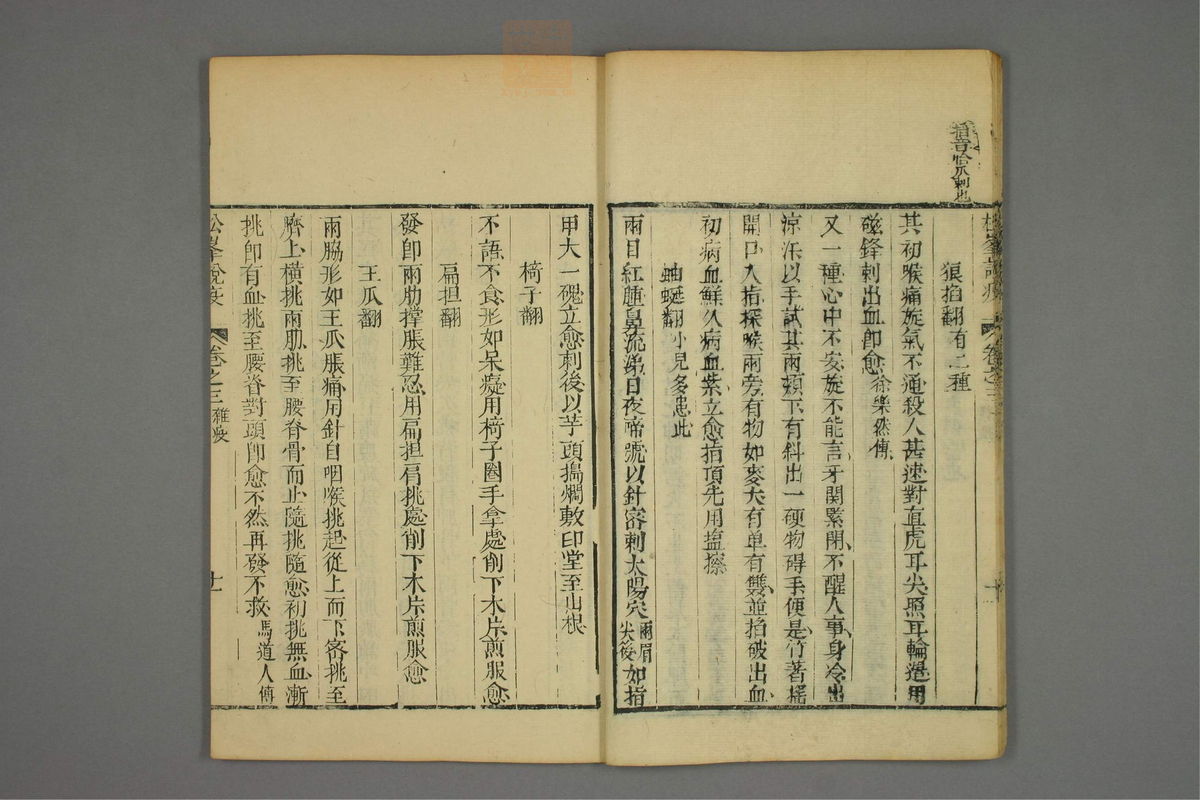 掐音恰爪刺也
狼掐翻有二種
其初喉痛旋氣不通殺人甚速對直虎耳尖照耳輪邉用
磁鋒刺出血卽愈徐樂然傳
又一種心中不安旋不能言牙關緊閉不醒人事身冷出
涼汗以手試其兩頰下有斜出一硬物碍手便是竹著搖
開口入指探喉兩旁有物如麥大有单有雙並掐破出血
初病血鮮久病血紫立愈指頂先用塩擦
蚰蜒翻小兒多患此
兩目紅腫鼻流涕日夜啼號以針密刺太陽穴兩眉尖後如指
甲大一磈立愈刺後以芋頭搗爛敷印堂至山根
椅子翻
不語不食形如呆癡用椅子圈手拿處削下木片煎服愈
扁担翻
發卽兩肋撑脹難忍用扁担肩挑處削下木片煎服愈
王瓜翻
兩脇形如王瓜脹痛用針自咽喉挑起從上而下密挑至
臍上橫挑兩肋挑至腰脊骨而止隨挑隨愈初挑無血漸
挑卽有血挑至腰脊對頭卽愈不然再發不救馬道人傳
松峯說疫
卷之三
雜疫
十一